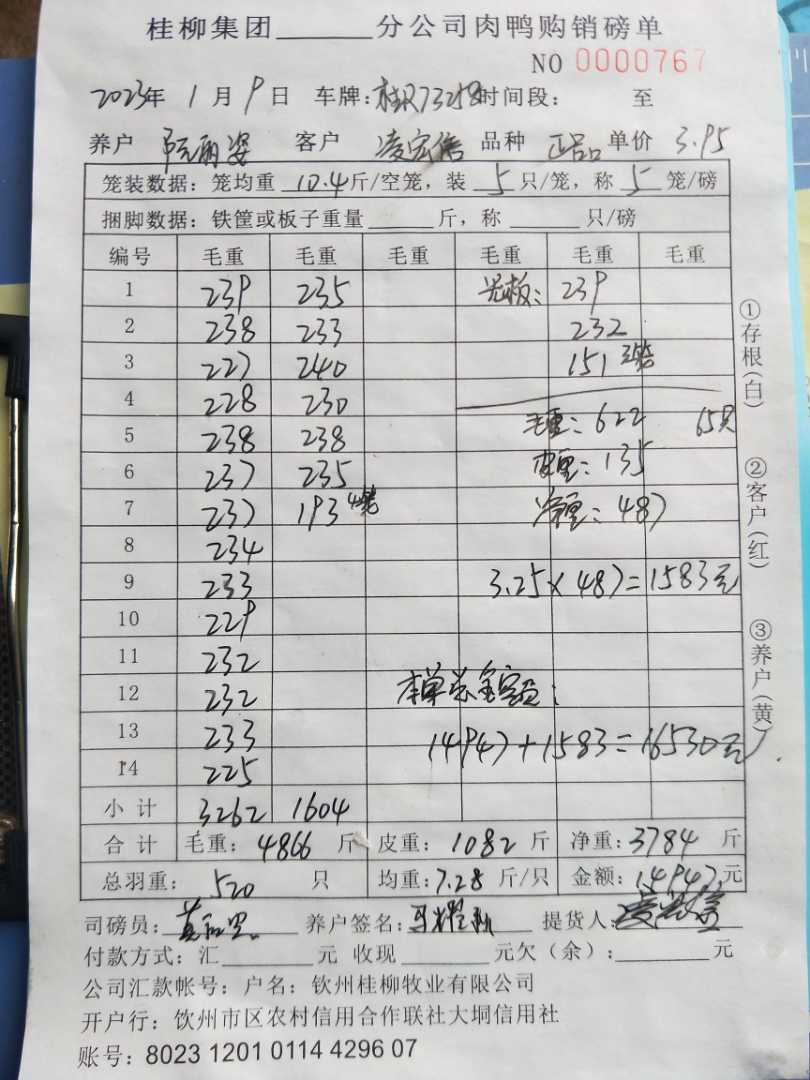 桂柳集团______分公司肉鸭购销磅单
NO 0000767
2023年 1 月 9 日 车牌：桂R73258 时间段： 至
养户 阮丽姿 客户 凌宏信 品种 正品 单价 3.95
笼装数据：笼均重 10.4 斤/空笼，装 5 只/笼，称 5 笼/磅
捆脚数据：铁筐或板子重量______斤，称______只/磅
编号 毛重 毛重 毛重 毛重 毛重 毛重
1 239 235 光板：239
2 238 233 232
3 227 240 151 3笼
4 228 230
5 238 238 毛重：622 65只
6 237 235 皮重：135
7 237 193 4笼 净重：487
8 234
9 233 3.25×487=1583元
10 229
11 232
12 232 本单总金额：
13 233 14947+1583=16530元
14 225
小计 3262 1604
合计 毛重：4866 斤 皮重：1082 斤 净重：3784 斤
总羽重：520 只 均重：7.28 斤/只 金额：14947元
司磅员： 养户签名： 提货人：
付款方式：汇______元 收现______元欠（余）：______元
公司汇款帐号：户名：钦州桂柳牧业有限公司
开户行：饮州市区农村信用合作联社大垌信用社
账号：8023 1201 0114 4296 07
①存根（白）
②客户（红）
③养户（黄）